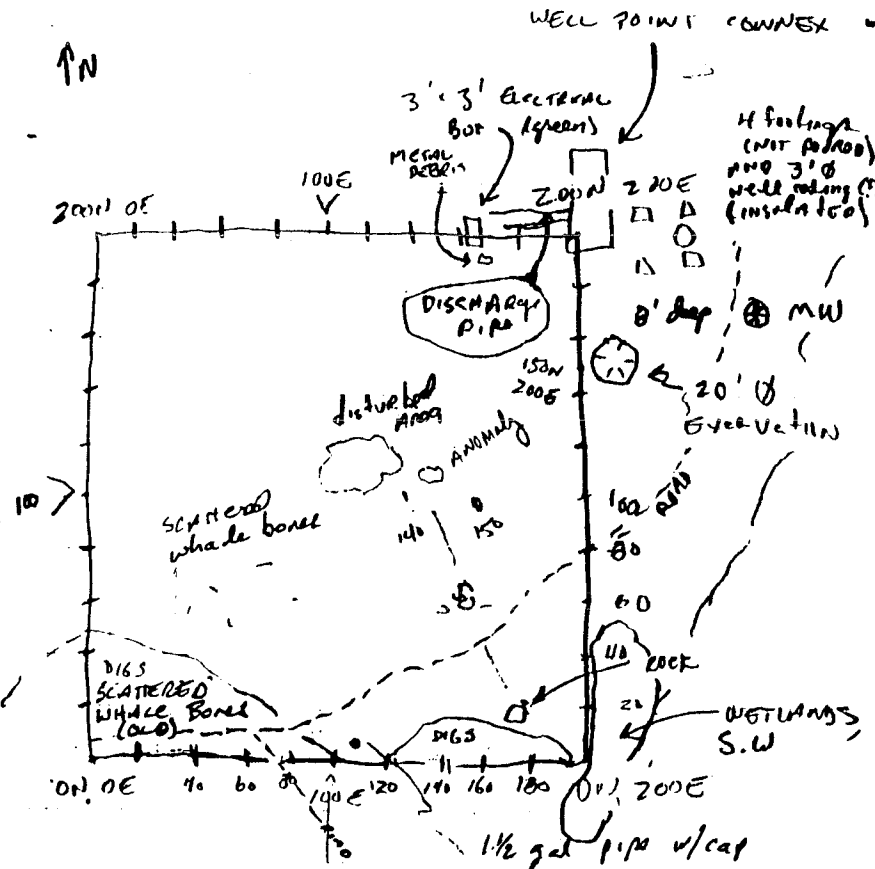 WELL POINT CONNEX
↑N
3' x 3' ELECTRICAL
BOX (green)
METAL
DEBRIS
4 footings
(NOT POURED)
AND 3' Ø
well casing (?)
(INSULATED)
100E
200N 0E
200N 200E
DISCHARGE
PIPE
8' deep
MW
150N
200E
20' Ø
EXCAVATION
disturbed
AREA
ANOMALY
100
SCATTERED
whale bones
140
150
100
ROAD
80
60
40
ROCK
20
WETLANDS
S.W
DIGS
SCATTERED
WHALE BONES
(OLD)
DIGS
0N 0E
40
60
80
100E
120
140
160
180
0N 200E
1 1/2 gal pipe w/cap